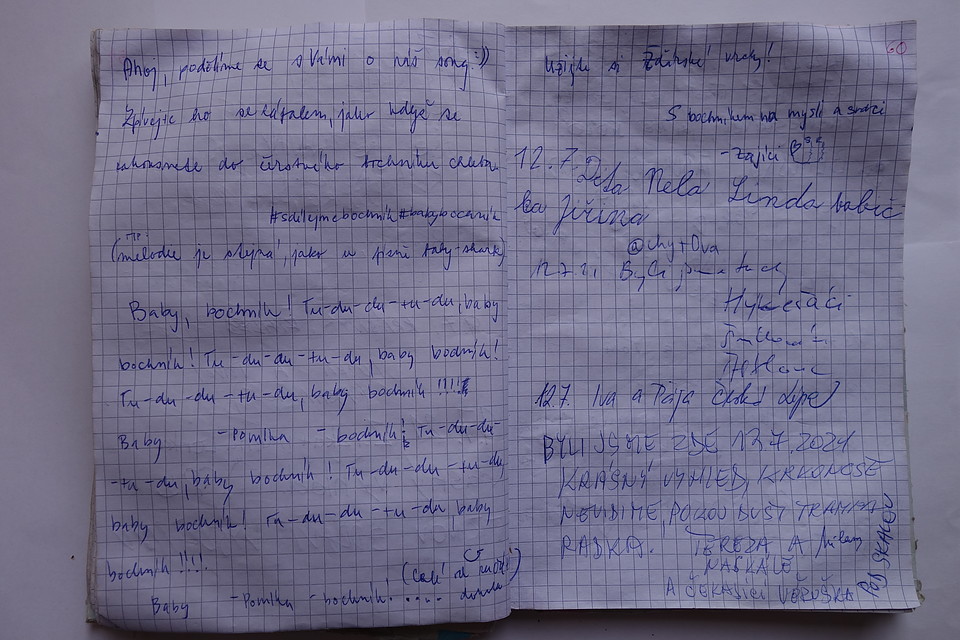 Ahoj, podělíme se s Vámi o náš song :))
Zpívejte ho se zápalem, jako když se
zakousnete do čerstvého bochníku chleba
#sdilejmebochnik #babybochnik
(melodie je stejná, jako u písně baby-shark)
Baby, bochník! Tu-du-du-tu-du, baby
bochník! Tu-du-du-tu-du, baby bochník!
Tu-du-du-tu-du, baby bochník !!!!
Baby - Pomíka - bochník! Tu-du-du-
-tu-du, baby bochník! Tu-du-du-tu-du,
baby bochník! Tu-du-du-tu-du, baby
bochník !!!!
(Celé od
Baby - Pomíka - bochník! ....
60
Užijte si Žďárské vrchy!
S bochníkem na mysli a srdci
- Zajíci
12.7. Nela Linda babič
ka Jiřina
@chyt0va
Byli jsme tady
12.7. Iva a Pája Česká Lípa
BYLI JSME ZDE 12.7.2024
KRÁSNÝ VÝHLED, KRKONOŠE
NEVIDÍME, POKOUŠÍ TRAMPA
RADKA. TEREZA A Milan
NA SKÁLE,
A ČEKAJÍCÍ VERUŠKA
POD SKALOU